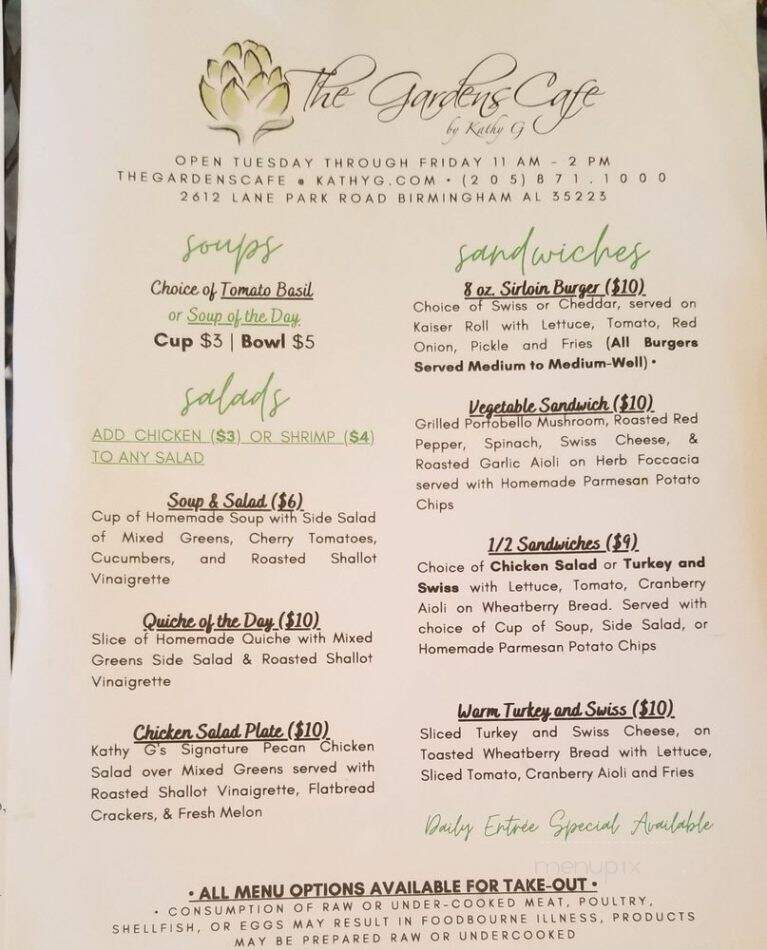 The Gardens Cafe
by Kathy G
OPEN TUESDAY THROUGH FRIDAY 11 AM - 2 PM
THEGARDENSCAFE @ KATHYG.COM • (205)871.1000
2612 LANE PARK ROAD BIRMINGHAM AL 35223
soups
Choice of Tomato Basil
or Soup of the Day
Cup $3 | Bowl $5
salads
ADD CHICKEN ($3) OR SHRIMP ($4)
TO ANY SALAD
Soup & Salad ($6)
Cup of Homemade Soup with Side Salad
of Mixed Greens, Cherry Tomatoes,
Cucumbers, and Roasted Shallot
Vinaigrette
Quiche of the Day ($10)
Slice of Homemade Quiche with Mixed
Greens Side Salad & Roasted Shallot
Vinaigrette
Chicken Salad Plate ($10)
Kathy G's Signature Pecan Chicken
Salad over Mixed Greens served with
Roasted Shallot Vinaigrette, Flatbread
Crackers, & Fresh Melon
sandwiches
8 oz. Sirloin Burger ($10)
Choice of Swiss or Cheddar, served on
Kaiser Roll with Lettuce, Tomato, Red
Onion, Pickle and Fries (All Burgers
Served Medium to Medium-Well) •
Vegetable Sandwich ($10)
Grilled Portobello Mushroom, Roasted Red
Pepper, Spinach, Swiss Cheese, &
Roasted Garlic Aioli on Herb Foccacia
served with Homemade Parmesan Potato
Chips
1/2 Sandwiches ($9)
Choice of Chicken Salad or Turkey and
Swiss with Lettuce, Tomato, Cranberry
Aioli on Wheatberry Bread. Served with
choice of Cup of Soup, Side Salad, or
Homemade Parmesan Potato Chips
Warm Turkey and Swiss ($10)
Sliced Turkey and Swiss Cheese, on
Toasted Wheatberry Bread with Lettuce,
Sliced Tomato, Cranberry Aioli and Fries
Daily Entrée Special Available
menupix
• ALL MENU OPTIONS AVAILABLE FOR TAKE-OUT •
• CONSUMPTION OF RAW OR UNDER-COOKED MEAT, POULTRY,
SHELLFISH, OR EGGS MAY RESULT IN FOODBOURNE ILLNESS, PRODUCTS
MAY BE PREPARED RAW OR UNDERCOOKED